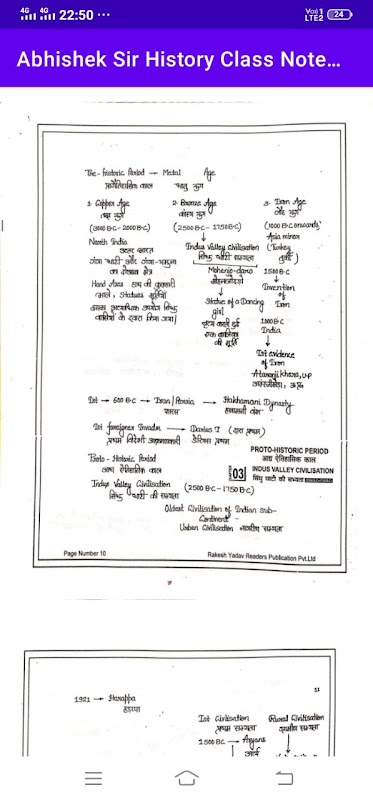 4G 4G 22:50 ...
Vo) 1 LTE2 24
Abhishek Sir History Class Note...
Pre-historic Period → Metal Age
प्रागैतिहासिक काल धातु युग
1. Copper Age 2. Bronze Age 3. Iron Age
ताम्र युग कांस्य युग लौह युग
(3000 B·C - 2000 B·C) (2500 B·C - 1750 B·C) (1000 B·C onwards)
North India
उत्तर भारत
गंगा घाटी और गंगा-यमुना
का दोआब क्षेत्र
Hand Axes हाथ की कुल्हाड़ी
Statues मूर्तियाँ
Indus Valley Civilisation
सिन्धु घाटी सभ्यता
Mohenjo-daro
मोहनजोदड़ो
Statue of a Dancing
girl
एक बालिका
की मूर्ति
Asia minor
(Turkey
तुर्की)
1500 B·C
Invention
of
Iron
1000 B·C
India
Ist evidence
of Iron
Atranjikhera, U·P
Ist → 600 B·C → Iran/Persia → Hakhamani Dynasty
पारस हखामनी वंश
Ist foreigner Invador → Darius I (दारा प्रथम)
प्रथम विदेशी आक्रमणकारी डेरियस प्रथम
PROTO-HISTORIC PERIOD
आद्य ऐतिहासिक काल
03 INDUS VALLEY CIVILISATION
सिंधु घाटी की सभ्यता
Proto-Historic Period
आद्य ऐतिहासिक काल
Indus Valley Civilisation (2500 B·C - 1750 B·C)
सिन्धु घाटी की सभ्यता
Oldest Civilisation of Indian sub-
Continent -
Urban Civilisation नगरीय सभ्यता
Page Number 10 Rakesh Yadav Readers Publication Pvt.Ltd
11
1921 → Harappa
हड़प्पा
Ist Civilisation Rural Civilisation
प्रथम सभ्यता ग्रामीण सभ्यता
1500 BC → Aryans
आर्य